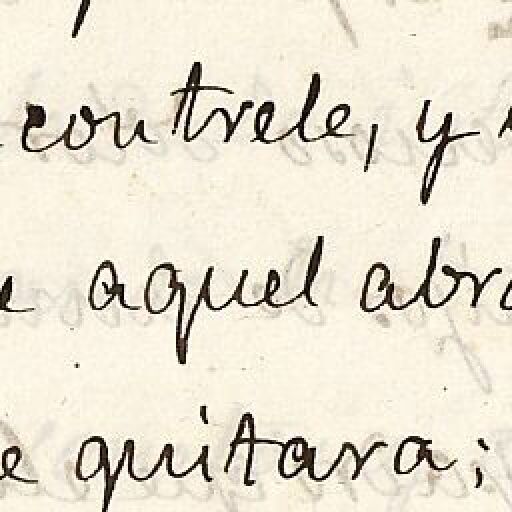 contrele, y
aquel abra
e quitara;